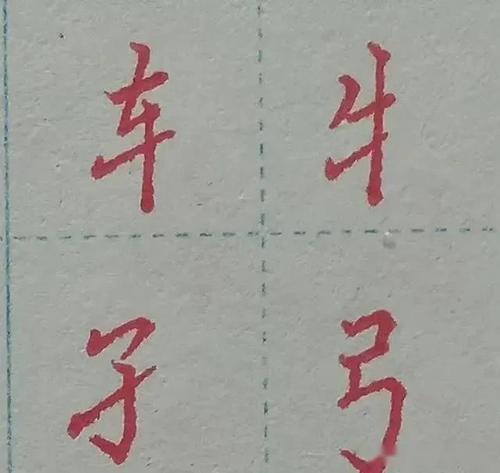 车 牛
子 弓